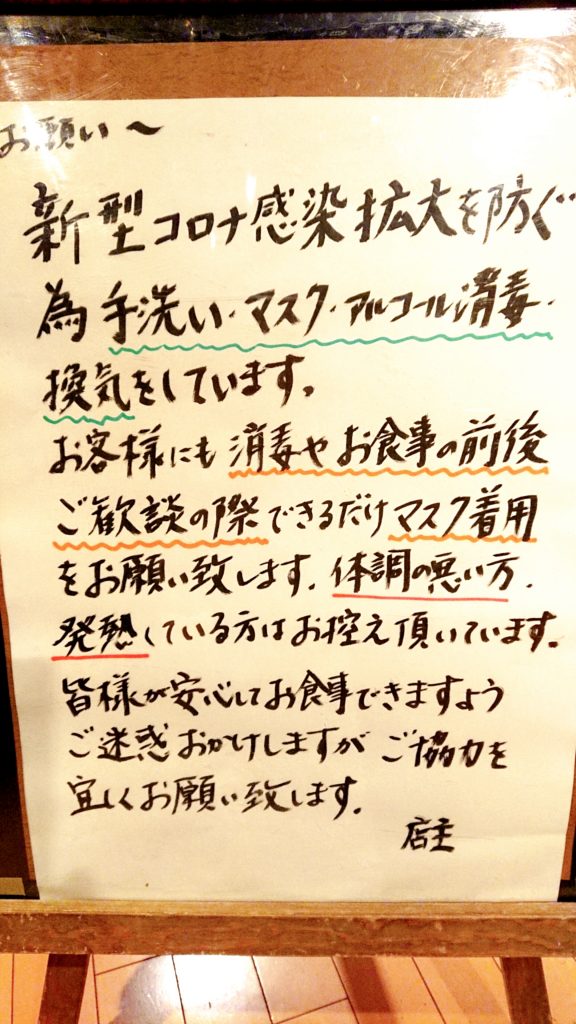 お願い～
新型コロナ感染拡大を防ぐ
為手洗い・マスク・アルコール消毒・
換気をしています。
お客様にも消毒やお食事の前後
ご歓談の際できるだけマスク着用
をお願い致します。体調の悪い方、
発熱している方はお控え頂いています。
皆様が安心してお食事できますよう
ご迷惑おかけしますがご協力を
宜しくお願い致します。
店主